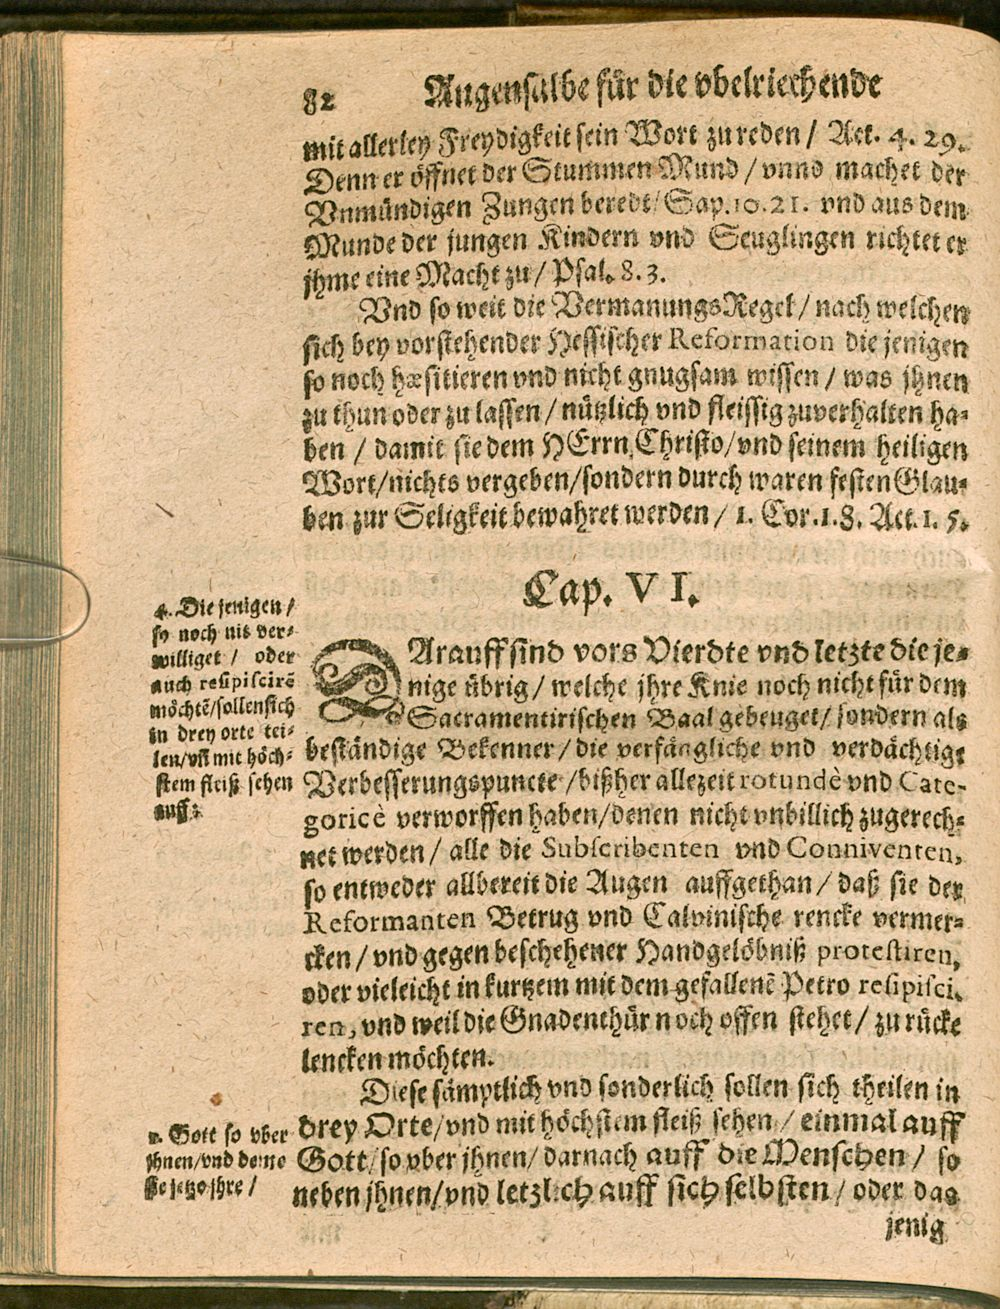 82 Augensalbe für die vbelriechende
mit allerley Freydigkeit sein Wort zu reden / Act. 4. 29.
Denn er öffnet der Stummen Mund / vnnd machet der
Vnmündigen Zungen beredt / Sap. 10. 21. vnd aus dem
Munde der jungen Kindern vnd Seuglingen richtet er
jhme eine Macht zu / Psal. 8. 3.
Vnd so weit die VermanungsRegel / nach welchen
sich bey vorstehender Hessischer Reformation die jenigen
so noch hæsitieren vnd nicht gnugsam wissen / was jhnen
zu thun oder zu lassen / nützlich vnd fleissig zuverhalten ha-
ben / damit sie dem HErrn Christo / vnd seinem heiligen
Wort / nichts vergeben / sondern durch waren festen Glau-
ben zur Seligkeit bewahret werden / 1. Cor. 1. 8. Act. 1. 5.
Cap. VI.
4. Die jenigen /
so noch nit ver-
williget / oder
auch resipiscirē
möchtē / sollen sich
in drey orte tei-
len / vñ mit höch-
stem fleiß sehen
auff:
DArauff sind vors Vierdte vnd letzte die je-
nige übrig / welche jhre Knie noch nicht für dem
Sacramentirischen Baal gebeuget / sondern als
beständige Bekenner / die verfängliche vnd verdächtige
Verbesserungspuncte / bißher allezeit rotundè vnd Cate-
goricè verworffen haben / denen nicht vnbillich zugerech-
net werden / alle die Subscribenten vnd Conniventen,
so entweder allbereit die Augen auffgethan / daß sie der
Reformanten Betrug vnd Calvinische rencke vermer-
cken / vnd gegen beschehener Handgelöbniß protestiren,
oder vieleicht in kurtzem mit dem gefallenē Petro resipisci-
ren, vnd weil die Gnadenthür noch offen stehet / zu rücke
lencken möchten.
Diese sämptlich vnd sonderlich sollen sich theilen in
drey Orte / vnd mit höchstem fleiß sehen / einmal auff
Gott / so vber jhnen / darnach auff die Menschen / so
neben jhnen / vnd letzlich auff sich selbsten / oder das
1. Gott so vber
jhnen / vnd deme
sie jetzo jhre /
jenig